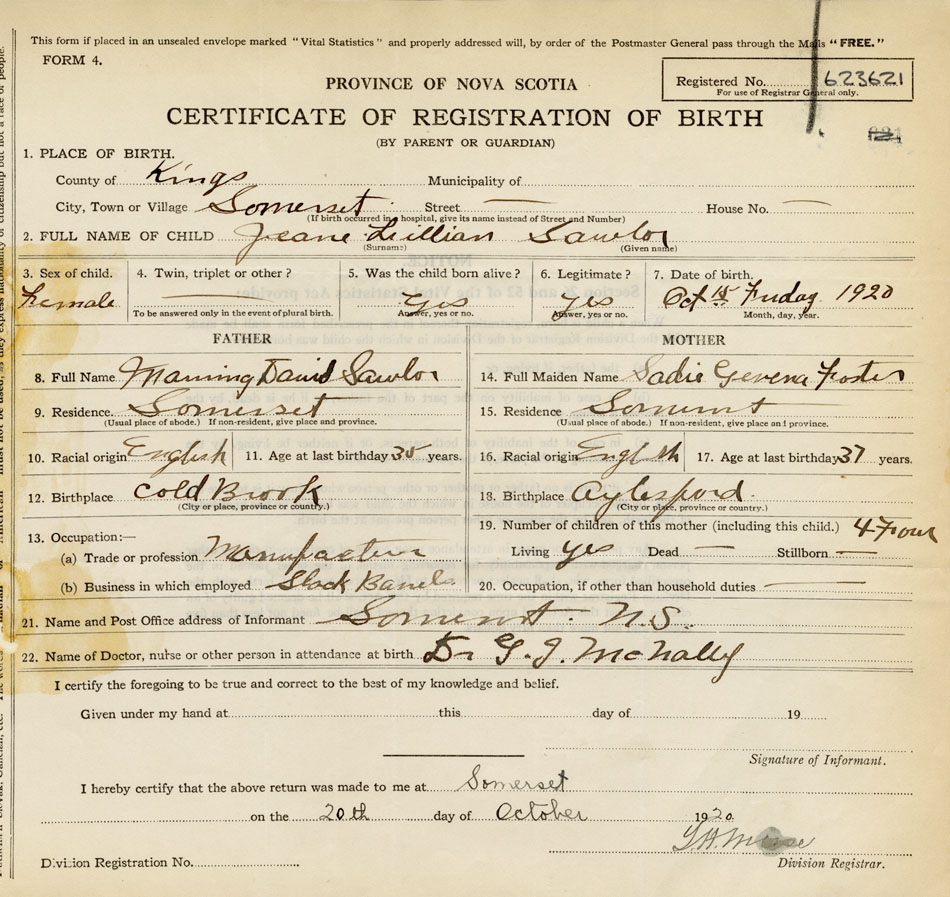 This form if placed in an unsealed envelope marked "Vital Statistics" and properly addressed will, by order of the Postmaster General pass through the Mails "FREE."
FORM 4.
PROVINCE OF NOVA SCOTIA
Registered No. 623621
For use of Registrar General only.
CERTIFICATE OF REGISTRATION OF BIRTH
(BY PARENT OR GUARDIAN)
1. PLACE OF BIRTH.
County of Kings Municipality of
City, Town or Village Somerset Street — House No. —
(If birth occurred in a hospital, give its name instead of Street and Number)
2. FULL NAME OF CHILD Jeane Lillian Sawlor
(Surname) (Given name)
3. Sex of child. 4. Twin, triplet or other? 5. Was the child born alive? 6. Legitimate? 7. Date of birth.
Female — Yes Yes Oct 15 Friday 1920
To be answered only in the event of plural birth. Answer, yes or no. Answer, yes or no. Month, day, year.
FATHER MOTHER
8. Full Name Manning David Sawlor 14. Full Maiden Name Sadie Foster
9. Residence. Somerset 15. Residence Somerset
(Usual place of abode.) If non-resident, give place and province. (Usual place of abode.) If non-resident, give place and province.
10. Racial origin English 11. Age at last birthday years. 16. Racial origin English 17. Age at last birthday 37 years.
12. Birthplace Cold Brook 18. Birthplace Aylesford.
(City or place, province or country.) (City or place, province or country.)
13. Occupation:— 19. Number of children of this mother (including this child.) 4 Four
(a) Trade or profession Living yes Dead — Stillborn —
(b) Business in which employed Slack Barrels 20. Occupation, if other than household duties —
21. Name and Post Office address of Informant Somerset. N.S.
22. Name of Doctor, nurse or other person in attendance at birth Dr G. J. McNally
I certify the foregoing to be true and correct to the best of my knowledge and belief.
Given under my hand at this day of 19
Signature of Informant.
I hereby certify that the above return was made to me at Somerset
on the 20th day of October 1920.
Division Registration No. Division Registrar.